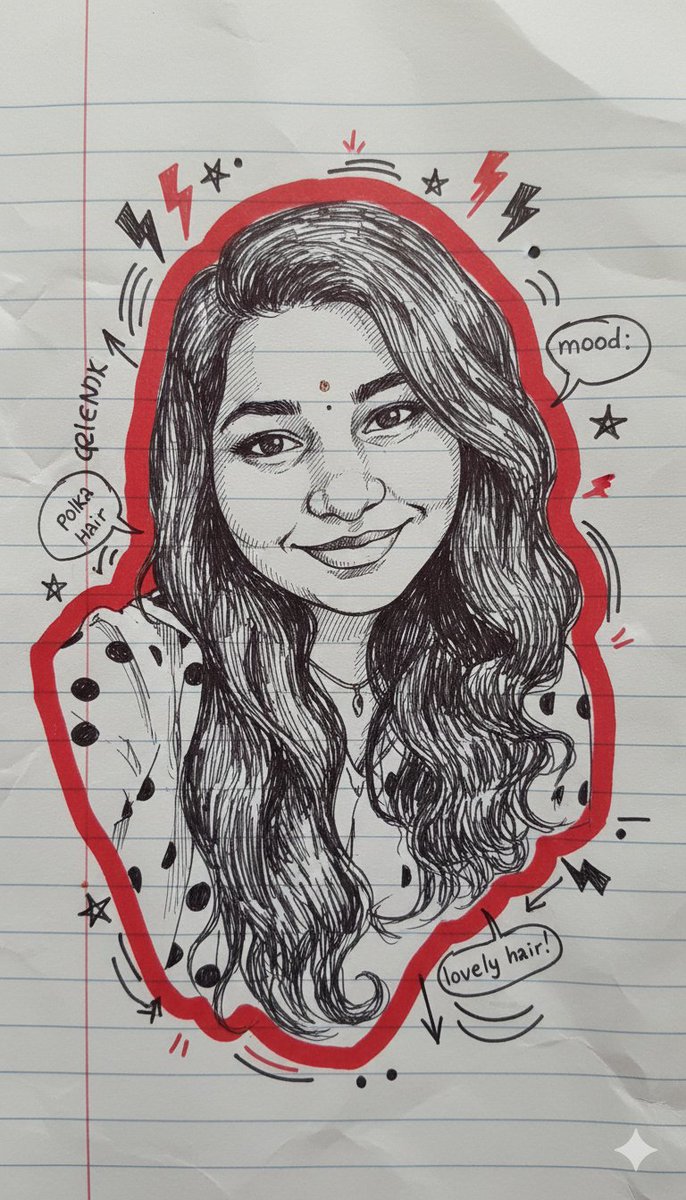 mood:
Polka
Hair
lovely hair!